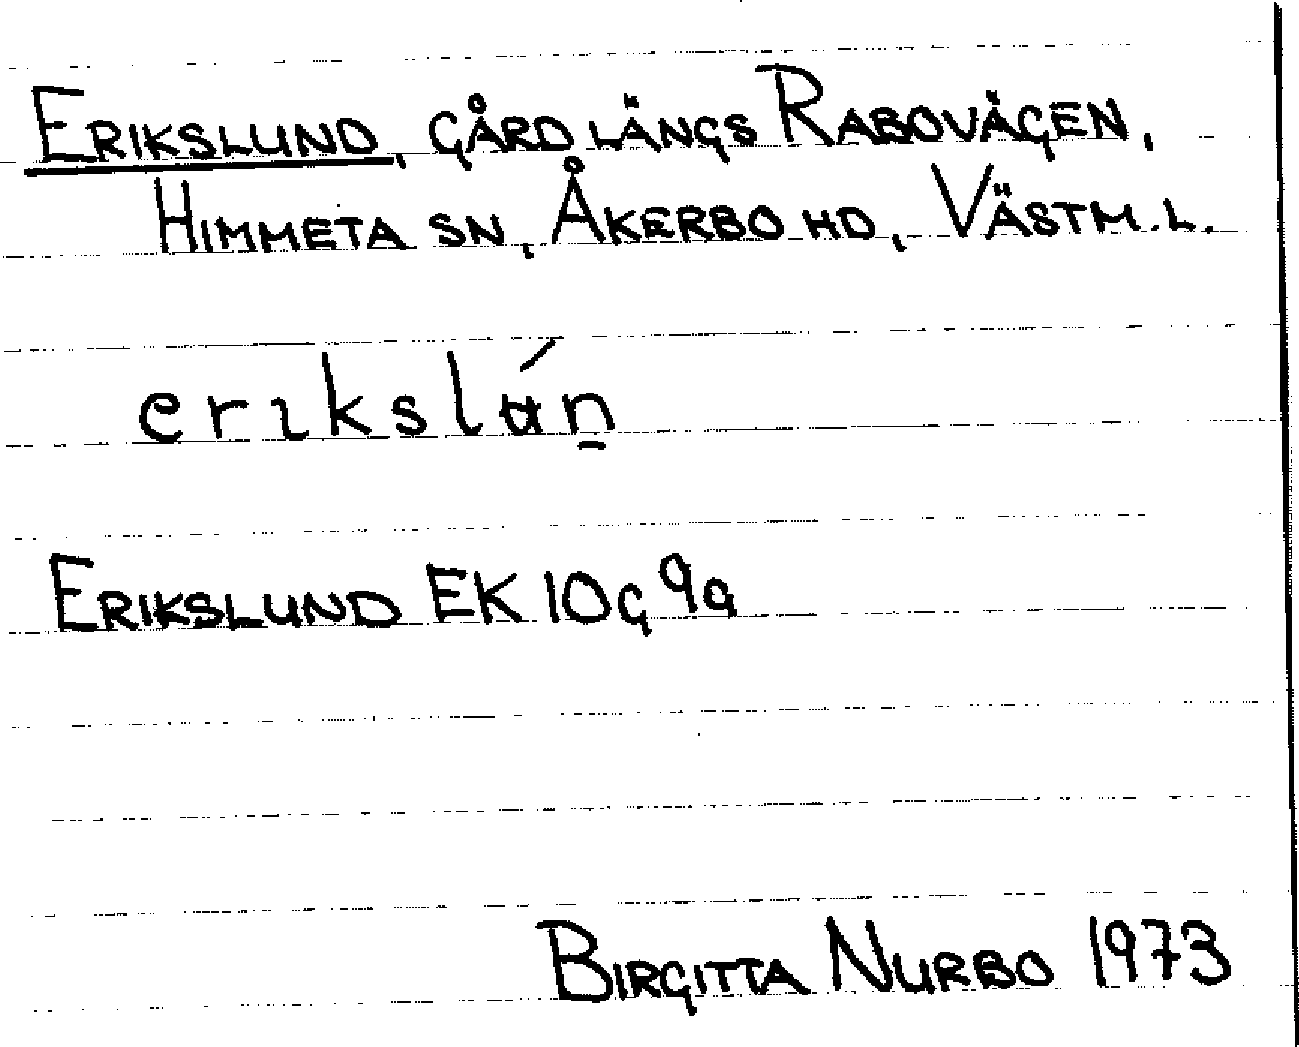 ERIKSLUND, GÅRD LÄNGS RABOVÄGEN,
HIMMETA SN, ÅKERBO HD, VÄSTM. L.
erıkslʉ́n̲
ERIKSLUND EK 10G 9a
BIRGITTA NURBO 1973